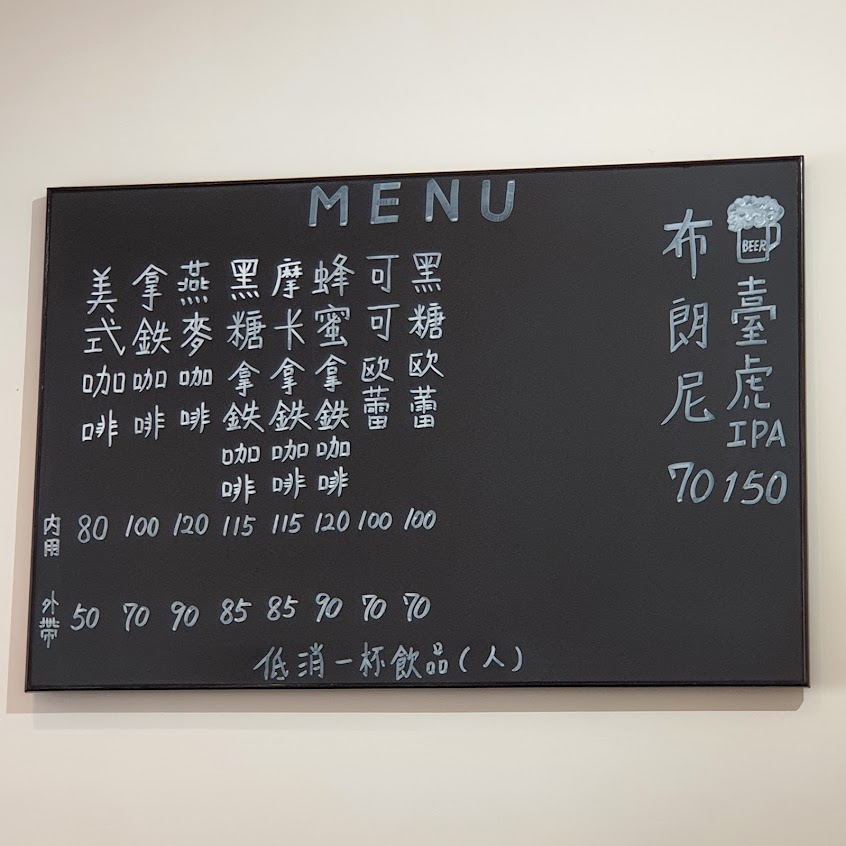 MENU
BEER
臺虎IPA 150
布朗尼 70
黑糖欧蕾
可可欧蕾
蜂蜜拿鉄咖啡
摩卡拿鉄咖啡
黑糖拿鉄咖啡
燕麥咖啡
拿鉄咖啡
美式咖啡
内用 80 100 120 115 115 120 100 100
外帶 50 70 90 85 85 90 70 70
低消一杯飲品(人)